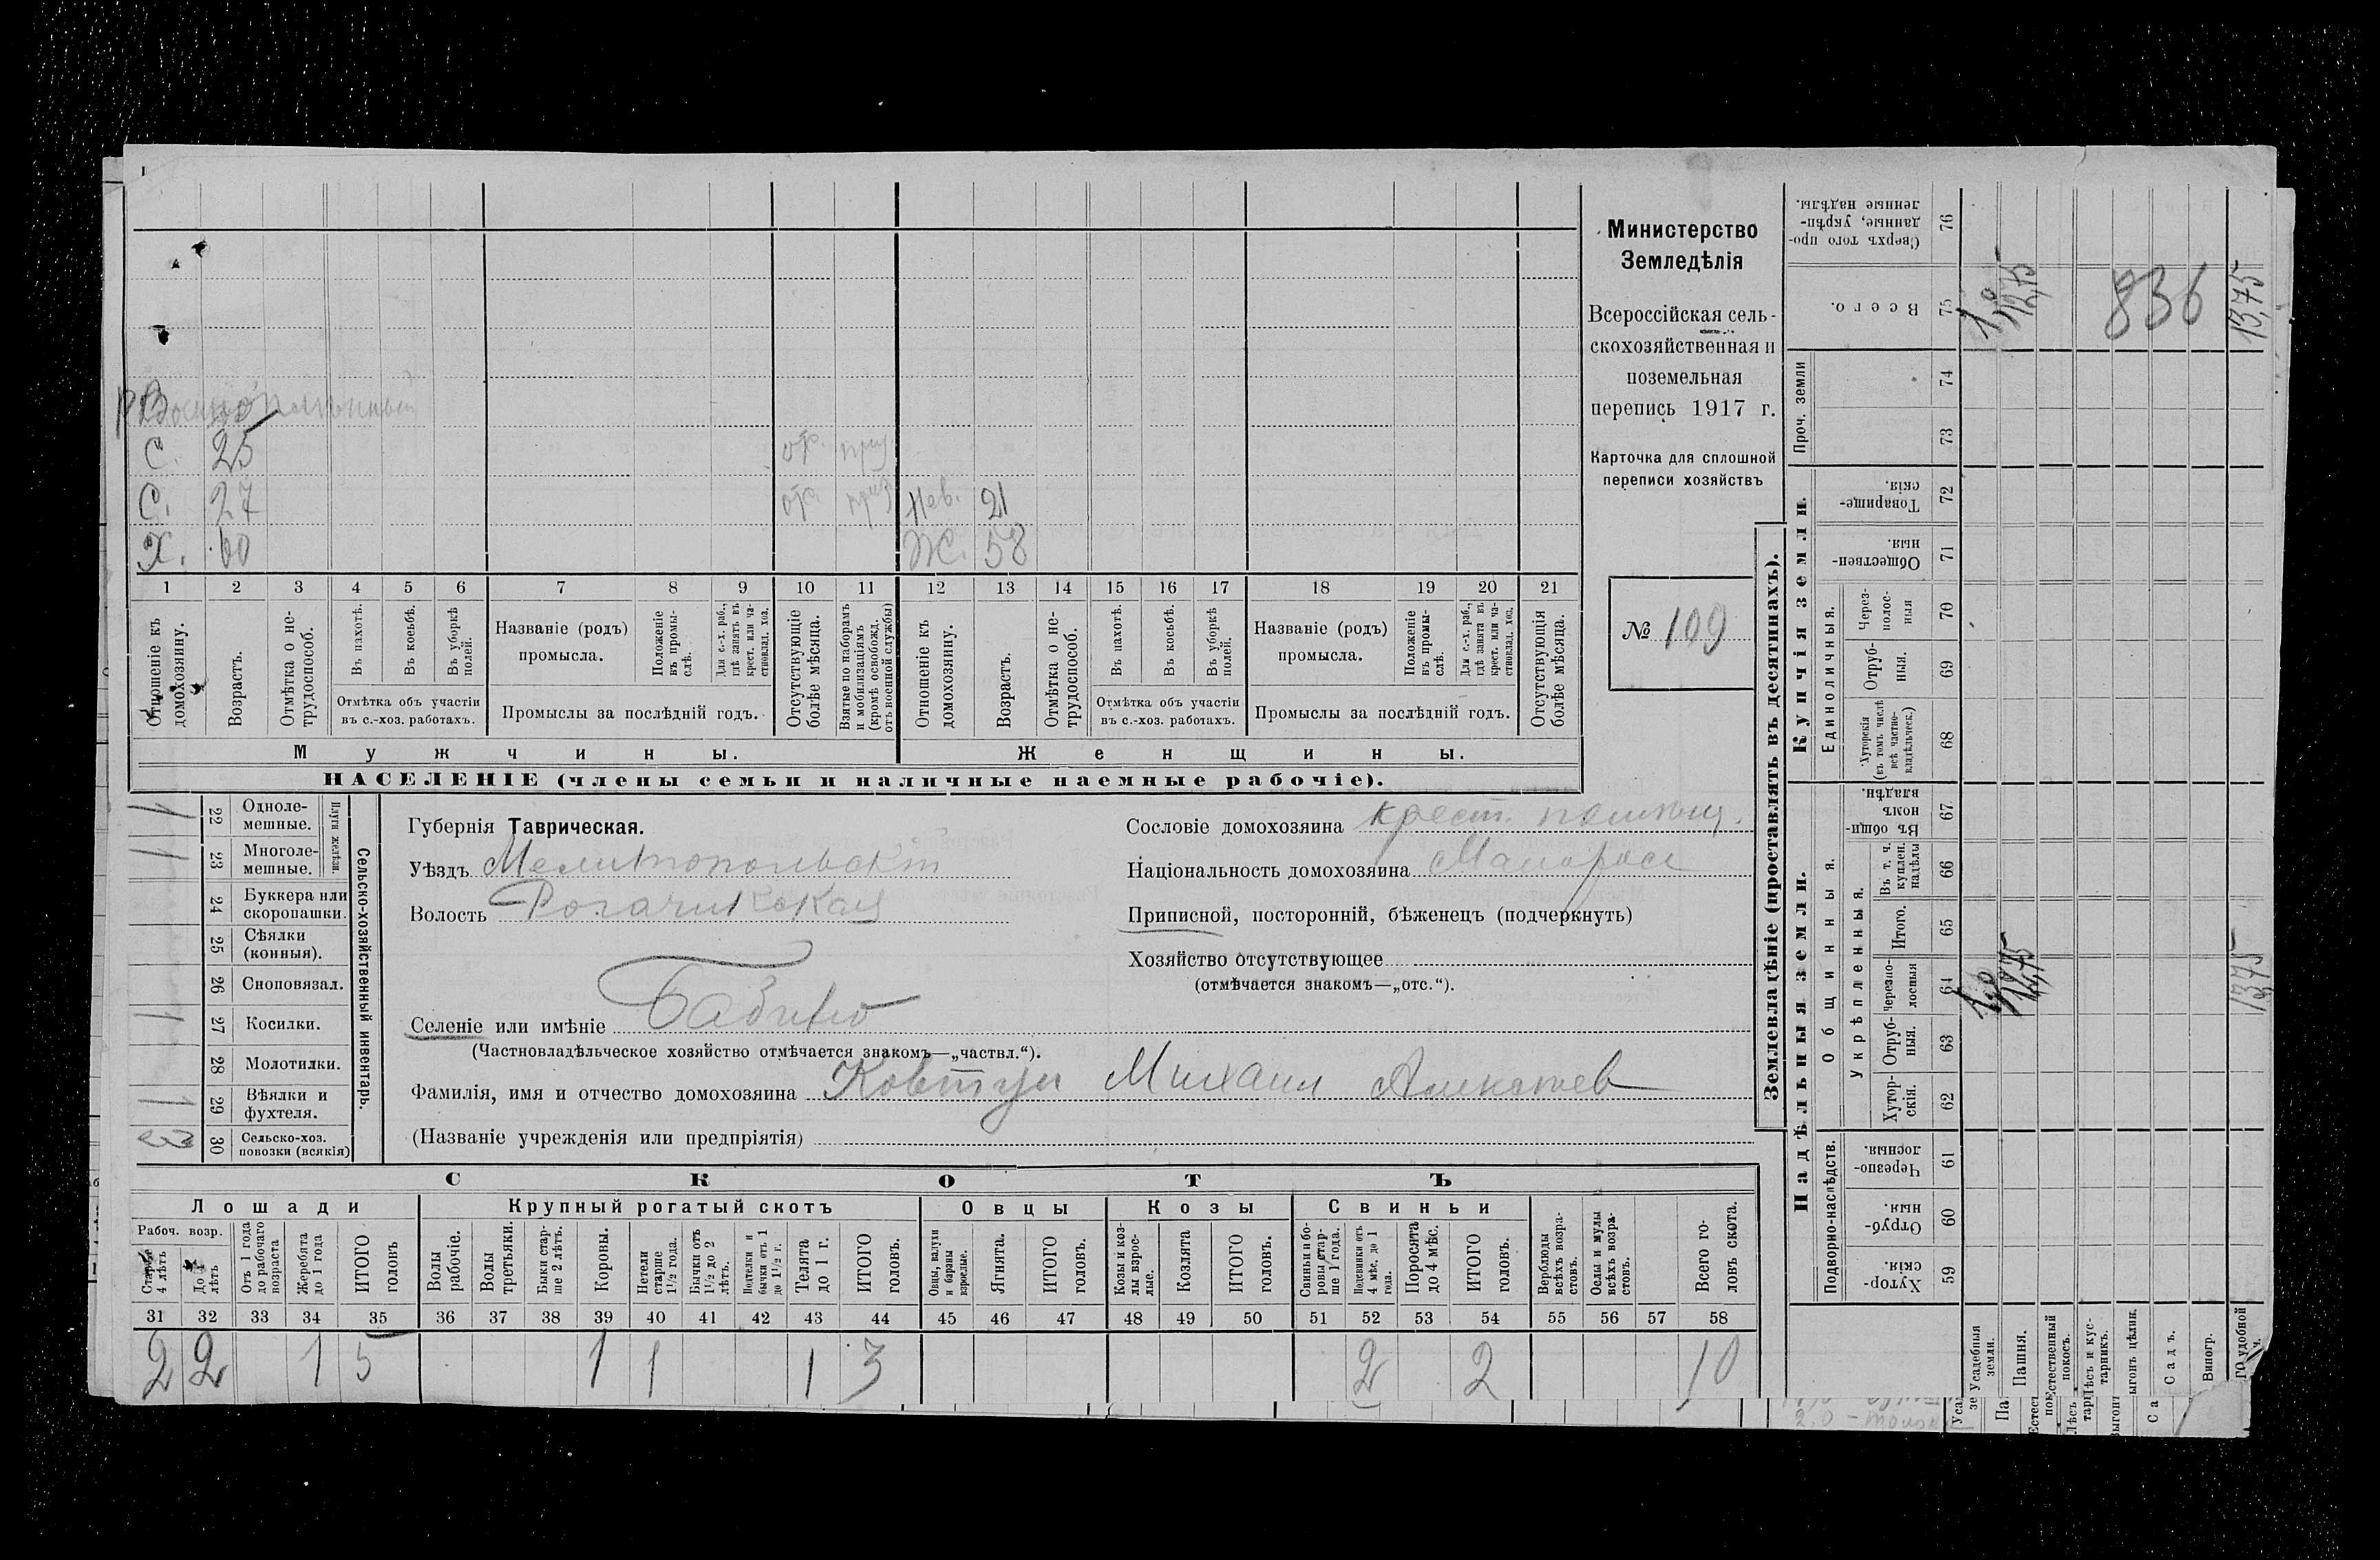 Министерство
Земледѣлія
Всероссійская сель-
скохозяйственная и
поземельная
перепись 1917 г.
Карточка для сплошной
переписи хозяйствъ
№ 109
С. 25 от. приз
С. 27 от. приз Нев. 21
Х. 60 Ж. 58
1 2 3 4 5 6 7 8 9 10 11 12 13 14 15 16 17 18 19 20 21
Отношеніе къ домохозяину.
Возрастъ.
Отмѣтка о не-трудоспособ.
Въ пахотѣ.
Въ косьбѣ.
Въ уборкѣ полей.
Отмѣтка объ участіи
въ с.-хоз. работахъ.
Названіе (родъ)
промысла.
Положеніе въ промы-слѣ.
Для с.-х. раб., гдѣ занятъ въ крест. или ча-стновлад. хоз.
Промыслы за послѣдній годъ.
Отсутствующіе болѣе мѣсяца.
Взятые по наборамъ и мобилизаціямъ (кромѣ освобожд. отъ военной службы)
Отношеніе къ домохозяину.
Возрастъ.
Отмѣтка о не-трудоспособ.
Въ пахотѣ.
Въ косьбѣ.
Въ уборкѣ полей.
Отмѣтка объ участіи
въ с.-хоз. работахъ.
Названіе (родъ)
промысла.
Положеніе въ промы-слѣ.
Для с.-х. раб., гдѣ занята въ крест. или ча-стновлад. хоз.
Промыслы за послѣдній годъ.
Отсутствующія болѣе мѣсяца.
Мужчины. Женщины.
НАСЕЛЕНІЕ (члены семьи и наличные наемные рабочіе).
Сельско-хозяйственный инвентарь.
Плуги желѣзн.
1 22 Одноле-мешные.
1 23 Многоле-мешные.
24 Буккера или скоропашки.
25 Сѣялки (конныя).
26 Сноповязал.
1 27 Косилки.
28 Молотилки.
1 29 Вѣялки и фухтеля.
3 30 Сельско-хоз. повозки (всякія)
Губернія Таврическая.
Уѣздъ Мелитопольскій
Волость Рогачикская
Селеніе или имѣніе Бабино
(Частновладѣльческое хозяйство отмѣчается знакомъ—„частвл.“).
Фамилія, имя и отчество домохозяина Ковтун Михаил Алексеев
(Названіе учрежденія или предпріятія)
Сословіе домохозяина крест.
Національность домохозяина Малоросс
Приписной, посторонній, бѣженецъ (подчеркнуть)
Хозяйство отсутствующее
(отмѣчается знакомъ—„отс.“).
СКОТЪ
Лошади Крупный рогатый скотъ Овцы Козы Свиньи
Рабоч. возр.
Старше 4 лѣтъ
До 4 лѣтъ
Отъ 1 года до рабочаго возраста
Жеребята до 1 года
ИТОГО головъ
Волы рабочіе.
Волы третьяки.
Быки стар-ше 2 лѣтъ.
Коровы.
Нетели старше 1½ года.
Бычки отъ 1½ до 2 лѣтъ.
Подтелки и бычки отъ 1 до 1½ г.
Телята до 1 г.
ИТОГО головъ.
Овцы, валухи и бараны взрослые.
Ягнята.
ИТОГО головъ.
Козы и коз-лы взрос-лые.
Козлята
ИТОГО головъ.
Свиньи и бо-ровы стар-ше 1 года.
Подсвинки отъ 4 мѣс. до 1 года.
Поросята до 4 мѣс.
ИТОГО головъ.
Верблюды всѣхъ возра-стовъ.
Ослы и мулы всѣхъ возра-стовъ.
Всего го-ловъ скота.
31 32 33 34 35 36 37 38 39 40 41 42 43 44 45 46 47 48 49 50 51 52 53 54 55 56 57 58
2 2 1 5 1 1 1 3 2 2 10
Землевладѣніе (проставлять въ десятинахъ).
Надѣльныя земли. Купчія земли.
Подворно-наслѣдств. Общинныя. Единоличныя. Проч. земли
Укрѣпленныя.
59 Хутор-скія.
60 Отруб-ныя.
61 Черезпо-лосныя.
62 Хутор-скія.
63 Отруб-ныя.
64 Черезпо-лосныя
65 Итого.
66 Въ т. ч. куплен. надѣлы
67 Въ общин-номъ владѣн.
68 Хуторскія (въ томъ числѣ всѣ частно-владѣльческ.)
69 Отруб-ныя.
70 Черезполос-ныя
71 Обществен-ныя.
72 Товарище-скія.
73
74
75 Всего.
76 Сверхъ того про-данные, укрѣп-ленные надѣлы.
Усадебныя земли.
Пашня.
Естественный покосъ.
Лѣсъ и кус-тарникъ.
Выгонъ цѣлин.
Садъ.
Виногр.
12,75
12,75
836
13,75
13,75